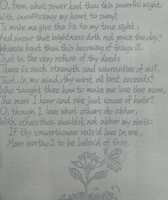 O, from what power hast thou this powerful might
With insufficiency my heart to sway?
To make me give the lie to my true sight,
And swear that brightness doth not grace the day?
Whence hast thou this becoming of things ill,
That in the very refuse of thy deeds
There is such strength and warrantise of skill,
That, in my mind, thy worst all best exceeds?
Who taught thee how to make me love thee more,
The more I hear and see just cause of hate?
O, though I love what others do abhor,
With others thou shouldst not abhor my state:
If thy unworthiness raised love in me,
More worthy I to be beloved of thee.